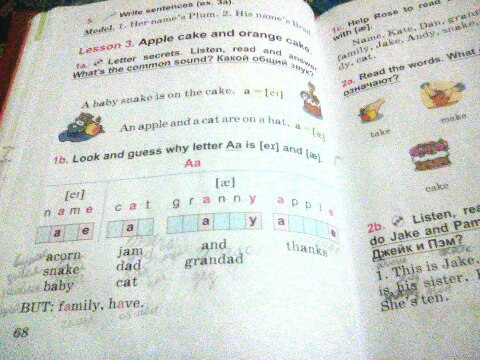 5. Write sentences (ex. 3a).
Model. 1. Her name's Plum. 2. His name's
Lesson 3. Apple cake and orange cake.
1a. Letter secrets. Listen, read and answer.
What's the common sound? Какой общий звук?
A baby snake is on the cake. a – [eɪ]
An apple and a cat are on a hat. a – [æ]
1b. Look and guess why letter Aa is [eɪ] and [æ].
Aa
[eɪ] [æ]
name cat granny apple
a e a a y a e
acorn jam and thanks
snake dad grandad
baby cat
BUT: family, have.
68
1c. Help Rose to read
with [æ].
Name, Kate, Dan,
family, Jake, Andy, snake,
dy, cat.
2a. Read the words. What
означают?
take make
cake
2b. Listen,
do Jake and
Джейк и Пэм?
1. This is Jake.
is his sister.
She's ten.